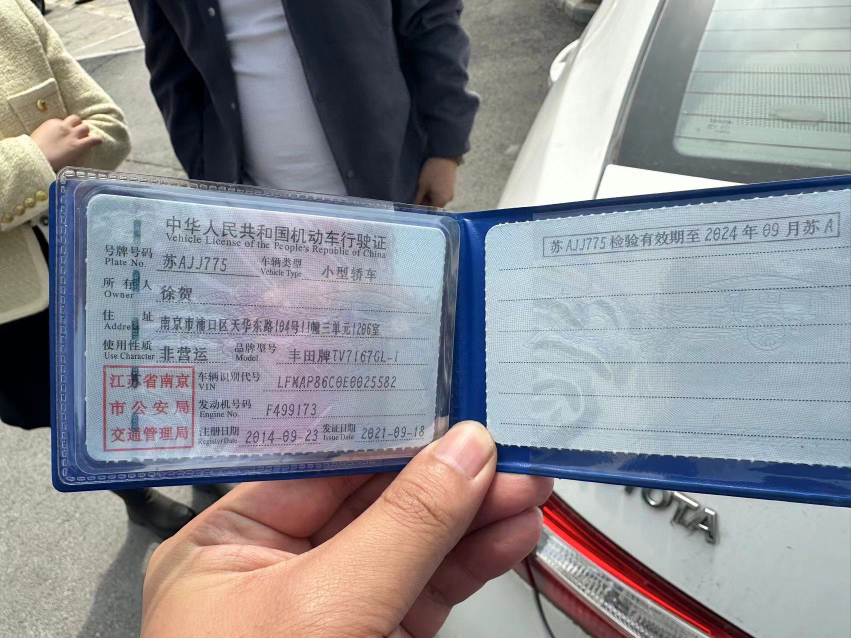 中华人民共和国机动车行驶证
Vehicle License of the People's Republic of China
号牌号码 苏AJJ775 车辆类型 小型轿车
Plate No. Vehicle Type
所有人 徐贺
Owner
住址 南京市浦口区天华东路104号11幢三单元1206室
Address
使用性质 非营运 品牌型号 丰田牌TV7167GL-i
Use Character Model
江苏省南京
市公安局
交通管理局
车辆识别代号 LFMAP86C0E0025582
VIN
发动机号码 F499173
Engine No.
注册日期 2014-09-23 发证日期 2021-09-18
Register Date Issue Date
苏AJJ775 检验有效期至 2024 年 09 月苏 A
YOTA